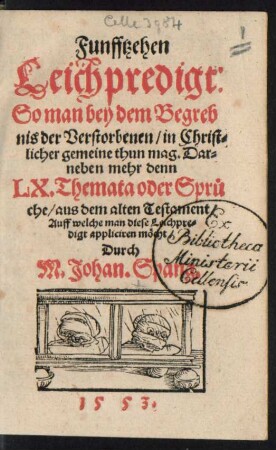 Celle 3984
1
Funfftzehen
Leichpredigt:
So man bey dem Begreb
nis der Verstorbenen / in Christ-
licher gemeine thun mag. Dar-
neben mehr denn
LX. Themata oder Sprü
che / aus dem alten Testament /
Auff welche man diese Leichpre-
digt appliciren möcht /
Durch
M. Johan.
Ex
Bibliotheca
Ministerii
Cellensis
1553.